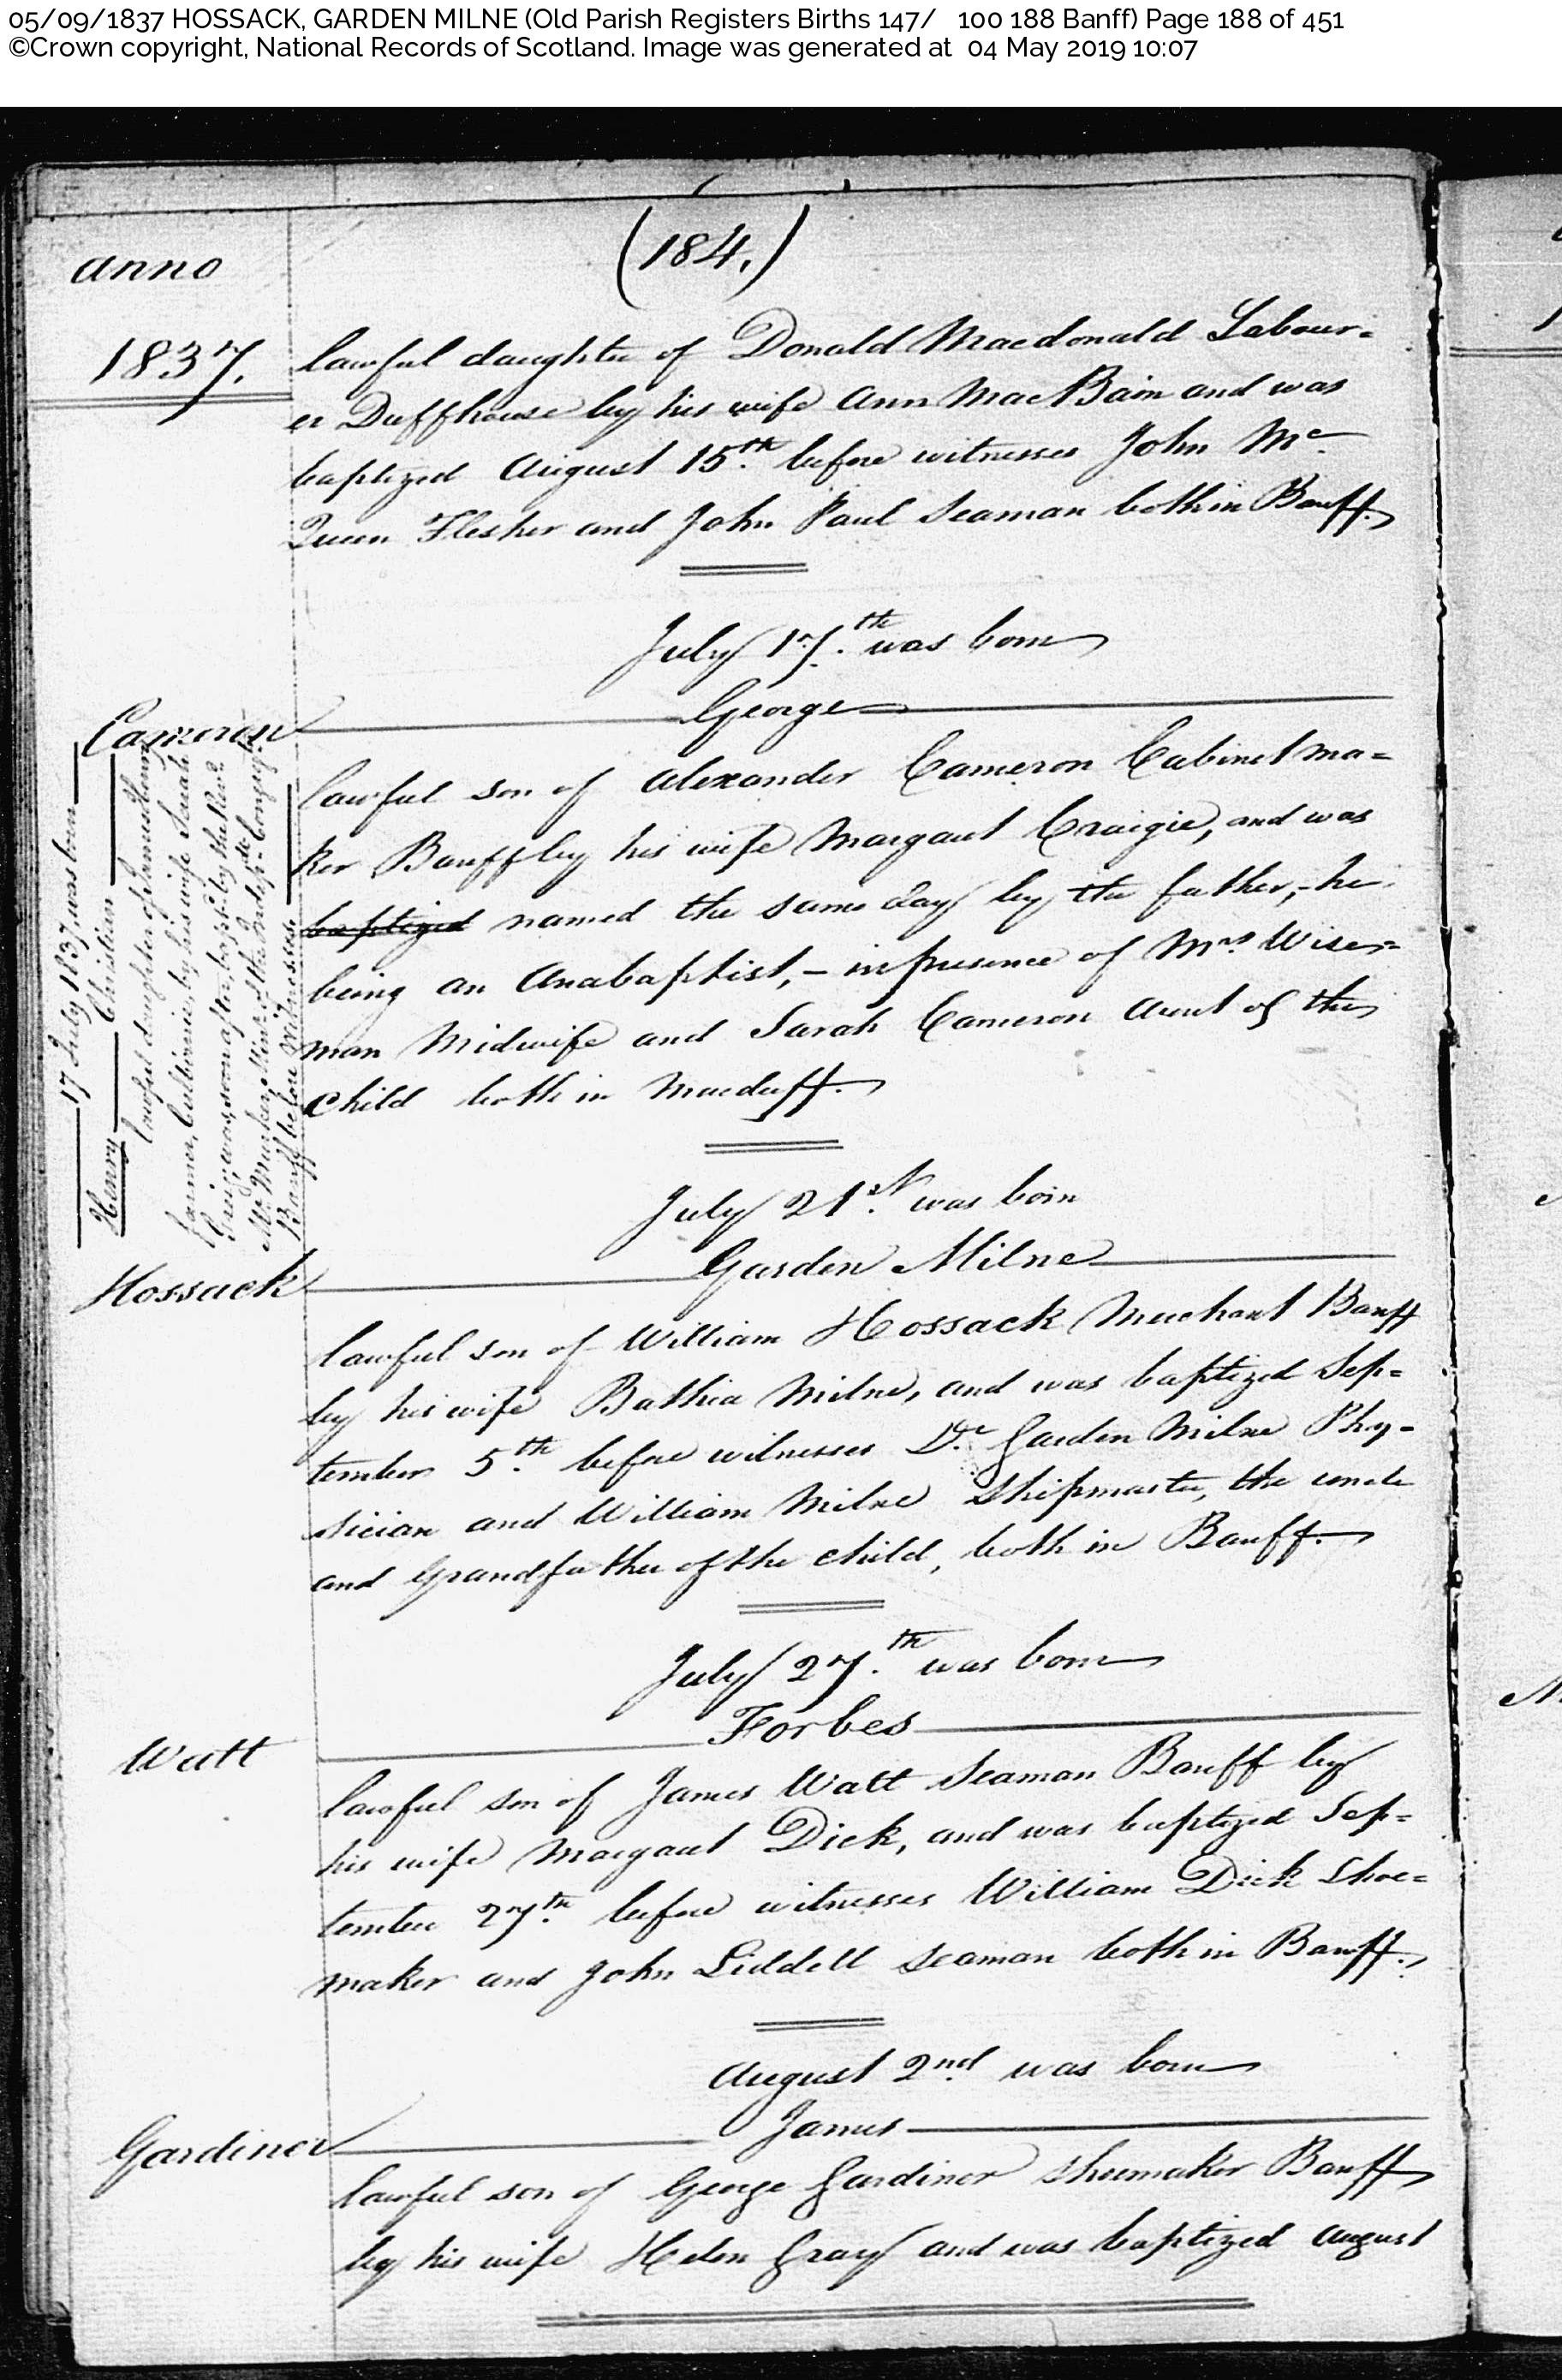 05/09/1837 HOSSACK, GARDEN MILNE (Old Parish Registers Births 147/ 100 188 Banff) Page 188 of 451
©Crown copyright, National Records of Scotland. Image was generated at 04 May 2019 10:07
(184.)
anno
1837.
lawful daughter of Donald Macdonald Labour=
er Duffhouse by his wife Ann MacBain and was
baptized August 15.th before witnesses John Mc.
Queen Flesher and John Paul Seaman both in Banff.
July 17.th was born
Cameron
George
lawful son of Alexander Cameron Cabinetma=
ker Banff by his wife Margaret Craigie, and was
baptized named the same day by the father,- he
being an Anabaptist,- in presence of Mrs. Wise=
man Midwife and Sarah Cameron Aunt of the
Child both in Macduff.
17 July 1837, was born
Henry Christian
lawful daughter of James Henry
farmer, by his wife Sarah
was soon after bapt. by the Revd.
Mr. Minr. of the Indepde. Congreg.
Banff before Witnesses.
July 21.st was born
Hossack
Garden Milne
lawful son of William Hossack Merchant Banff
by his wife Bathia Milne, and was baptized Sep=
tember 5.th before witnesses Dr. Garden Milne Phy=
sician and William Milne Shipmaster, the uncle
and Grandfather of the child, both in Banff.
July 27.th was born
Watt
Forbes
lawful son of James Watt Seaman Banff by
his wife Margaret Dick, and was baptized Sep=
tember 27.th before witnesses William Dick Shoe=
maker and John Liddell Seaman both in Banff.
August 2nd. was born
Gardiner
James
lawful son of George Gardiner Shoemaker Banff
by his wife Helen Gray and was baptized August